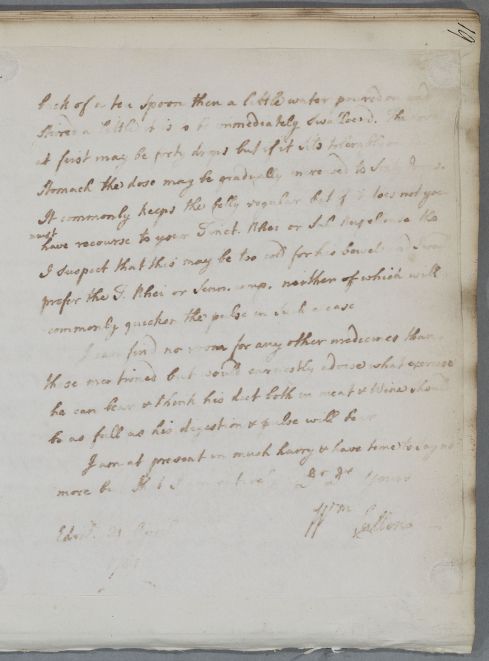 19
back of a tea spoon then a little water poured on and
stirred a little it is to be immediately swallowed. The dose
at first may be forty drops but if it sits
Stomach the dose may be gradually increased to
It commonly keeps the belly regular but if it does not you
must
have recourse to your Tinct. Rhei or Sal
I suspect that this may be too cold for his bowels and
prefer the T. Rhei or Senn. comp. neither of which will
commonly quicken the pulse in such a case
I can find no room for any other medicines than
those mentioned but would earnestly advise what exercise
he can bear & think his diet both in meat & Wine should
be as full as his digestion & pulse will bear
I am at present in much hurry & have time to say no
more but I am Dr Sr Yours
Edinr. 21